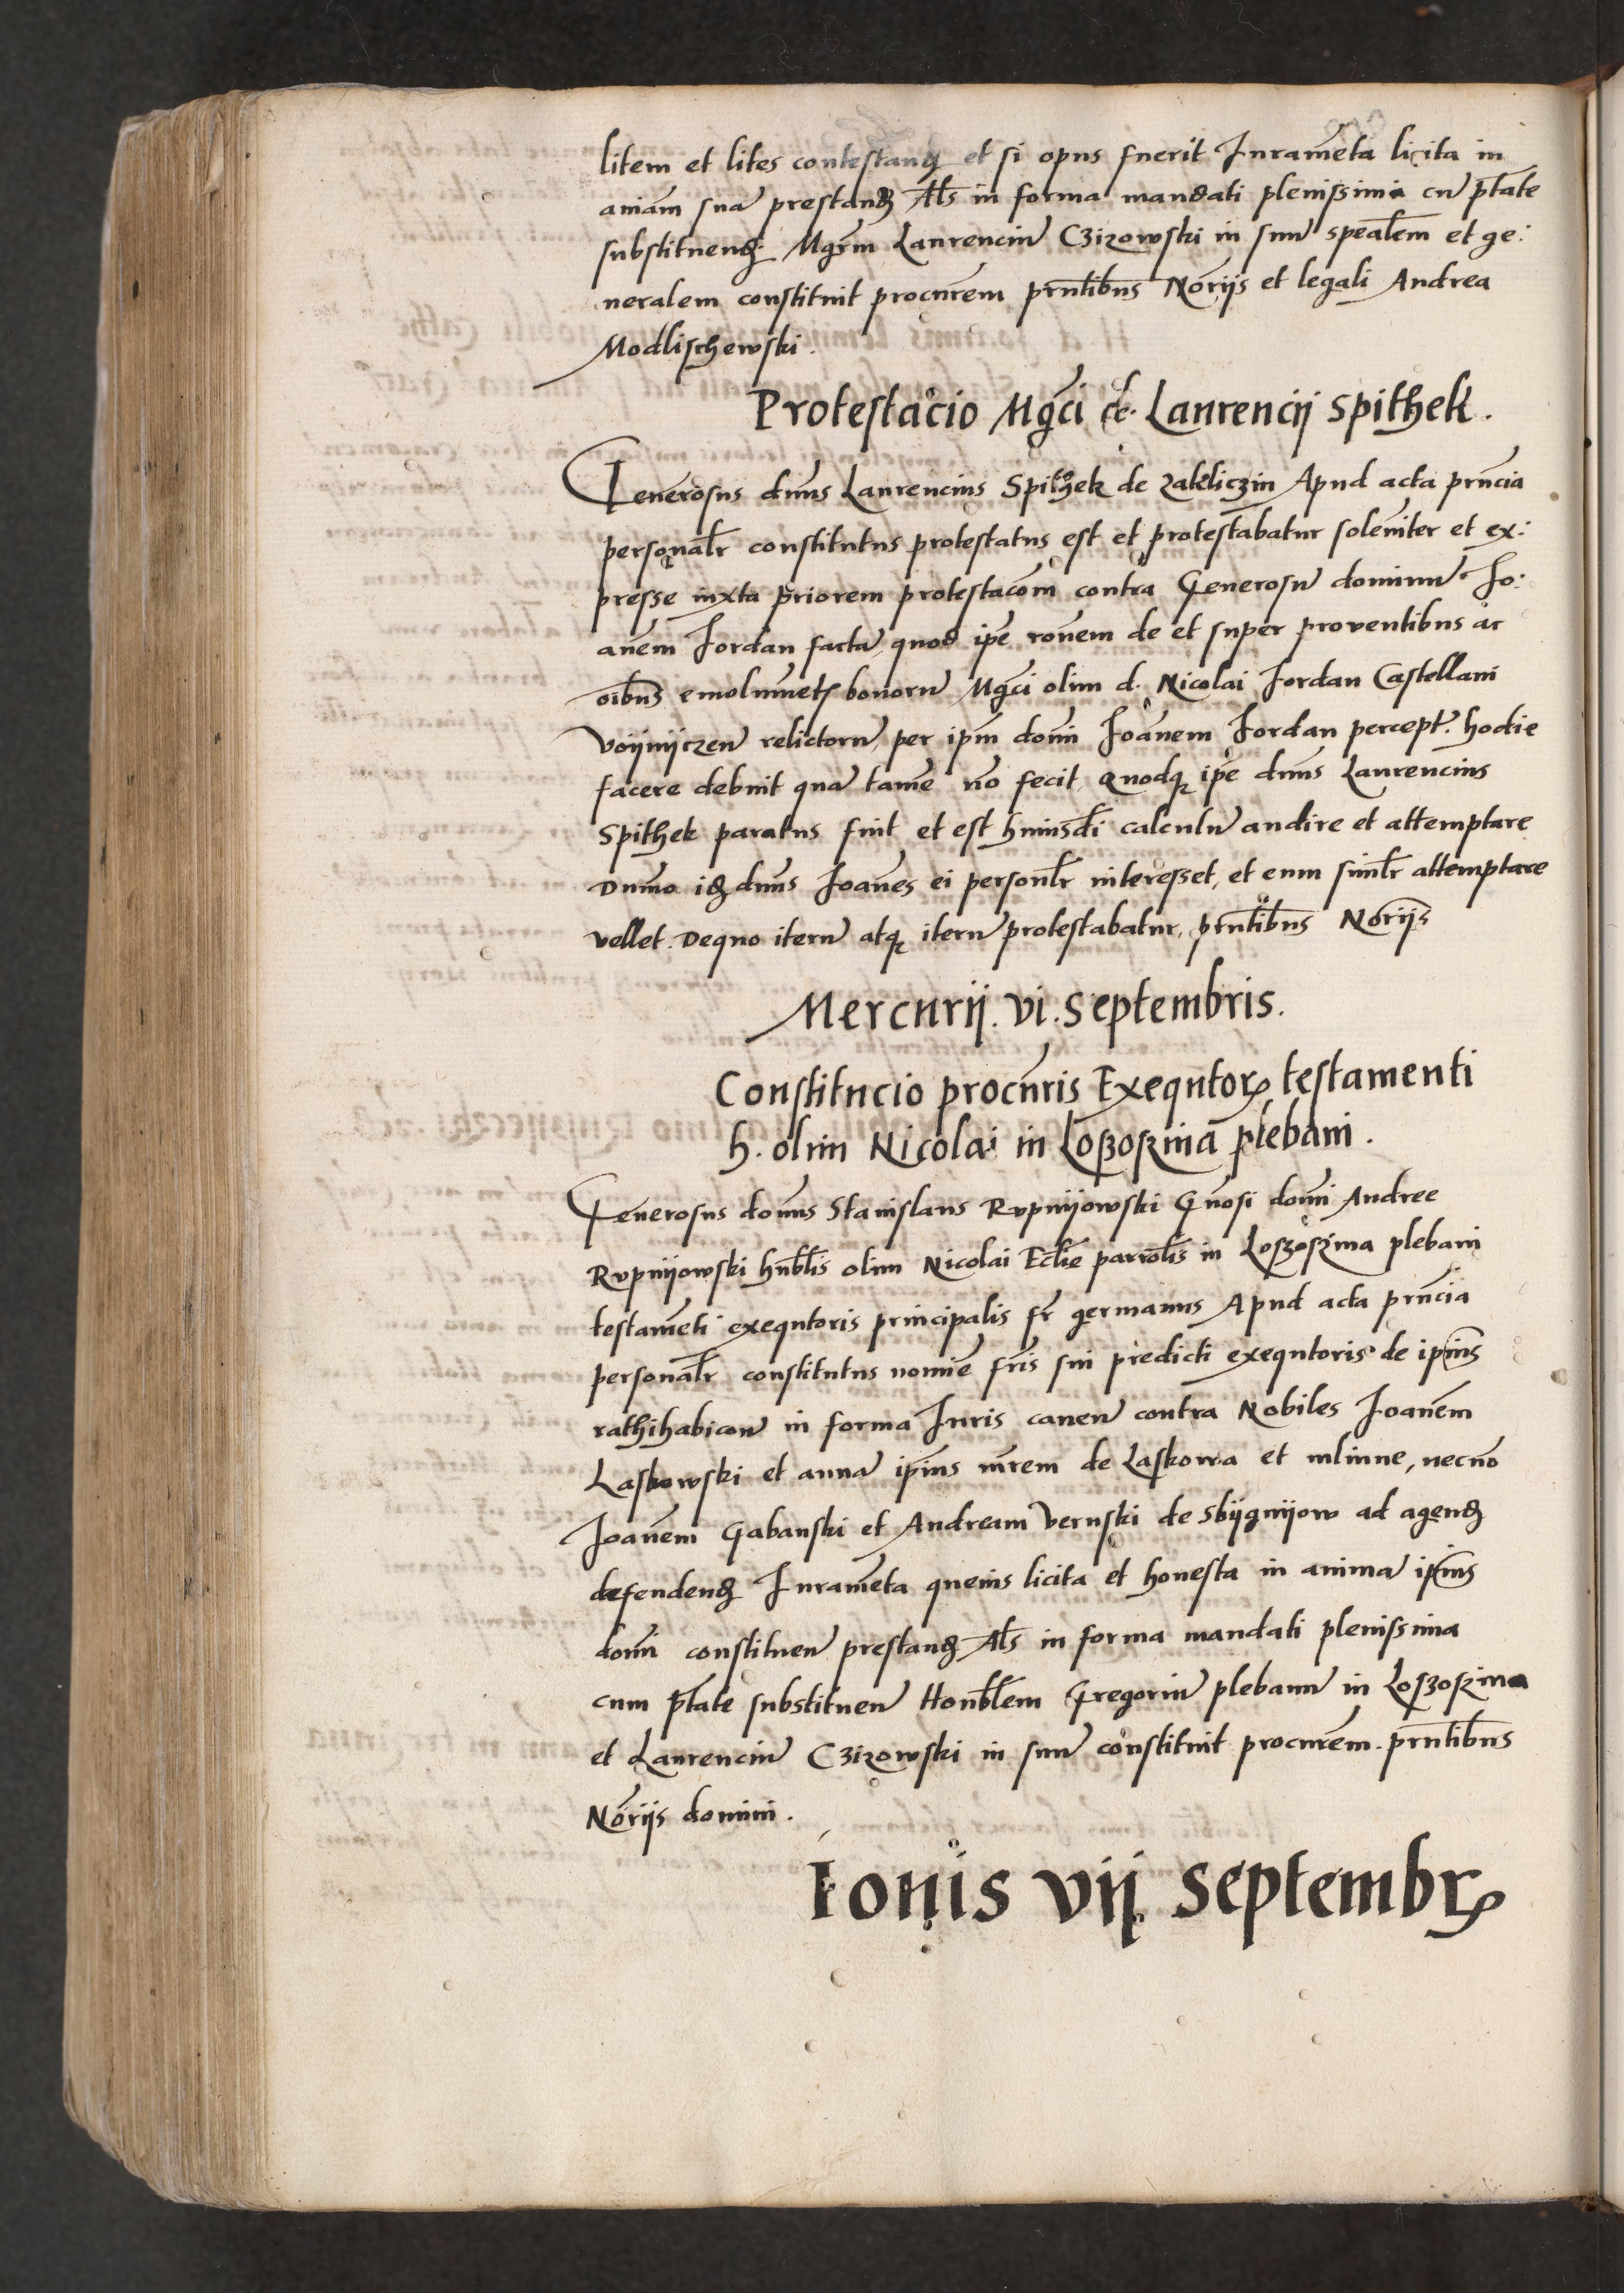 litem et lites contestanȝ et si opus fuerit Iurameta licita in
aniam sua prestanȝ Als in forma mandati plenissima cu ptate
substituenȝ. Mgrm Laurenciu Czizowski in suu spealem et ge:
neralem constituit procurem prntibus Norijs et legali Andrea
Modlischewski.
Protestacio Mgci d. Laurencij Spithek.
Generosus dnus Laurencius Spithek de Zakliczin Apud acta prncia
personalr constitutus protestatus est et protestabatur soleniter et ex:
presse iuxta priorem protestacom contra Generosu dominu Io:
anem Iordan facta, quod ipe ronem de et super proventibus ac
oibus emolumetꝵ bonoru Mgci olim d. Nicolai Iordan Castellani
Voijnijczen relictoru, per ipm domi Ioanem Iordan percept. hodie
facere debuit qua tame no fecit, Quodqꝫ ipe dnus Laurencius
Spithek paratus fuit et est huiusdi calculu audire et attemptare
Dumo idȝ dnus Ioanes ei personlr interesset, et eum simlr attemptare
vellet. Dequo iteru atqꝫ iteru protestabatur, prntibus Norijs
Mercurij. vi. Septembris.
Constitucio procuris Exequtorꝵ testamenti
h. olim Nicolai in Loßoßina plebani.
Generosus domus Stanislaus Rupnijowski Gnosi domi Andree
Rupnijowski hnblis olim Nicolai Eclie parrolis in Loßoßina plebani
testameti exequtoris principalis fr germanus Apud acta prncia
personalr constitutus nomie fris sui predicti exequtoris de ipius
rathihabicon in forma Iuris canen contra Nobiles Ioanem
Laskowski et anna ipius mrem de Laskowa et mlinne, necno
Ioanem Gabanski et Andream Vernski de Sbijgnijow ad agenȝ
defendenȝ Iurameta queuis licita et honesta in anima ipius
domi constituen prestanȝ Als in forma mandati plenissima
cum ptate substituen Honblem Gregoriu plebanu in Loßoßina
et Laurenciu Czizowski in suu constituit procurem. prntibus
Norijs domini.
Iouis vij Septembrꝵ